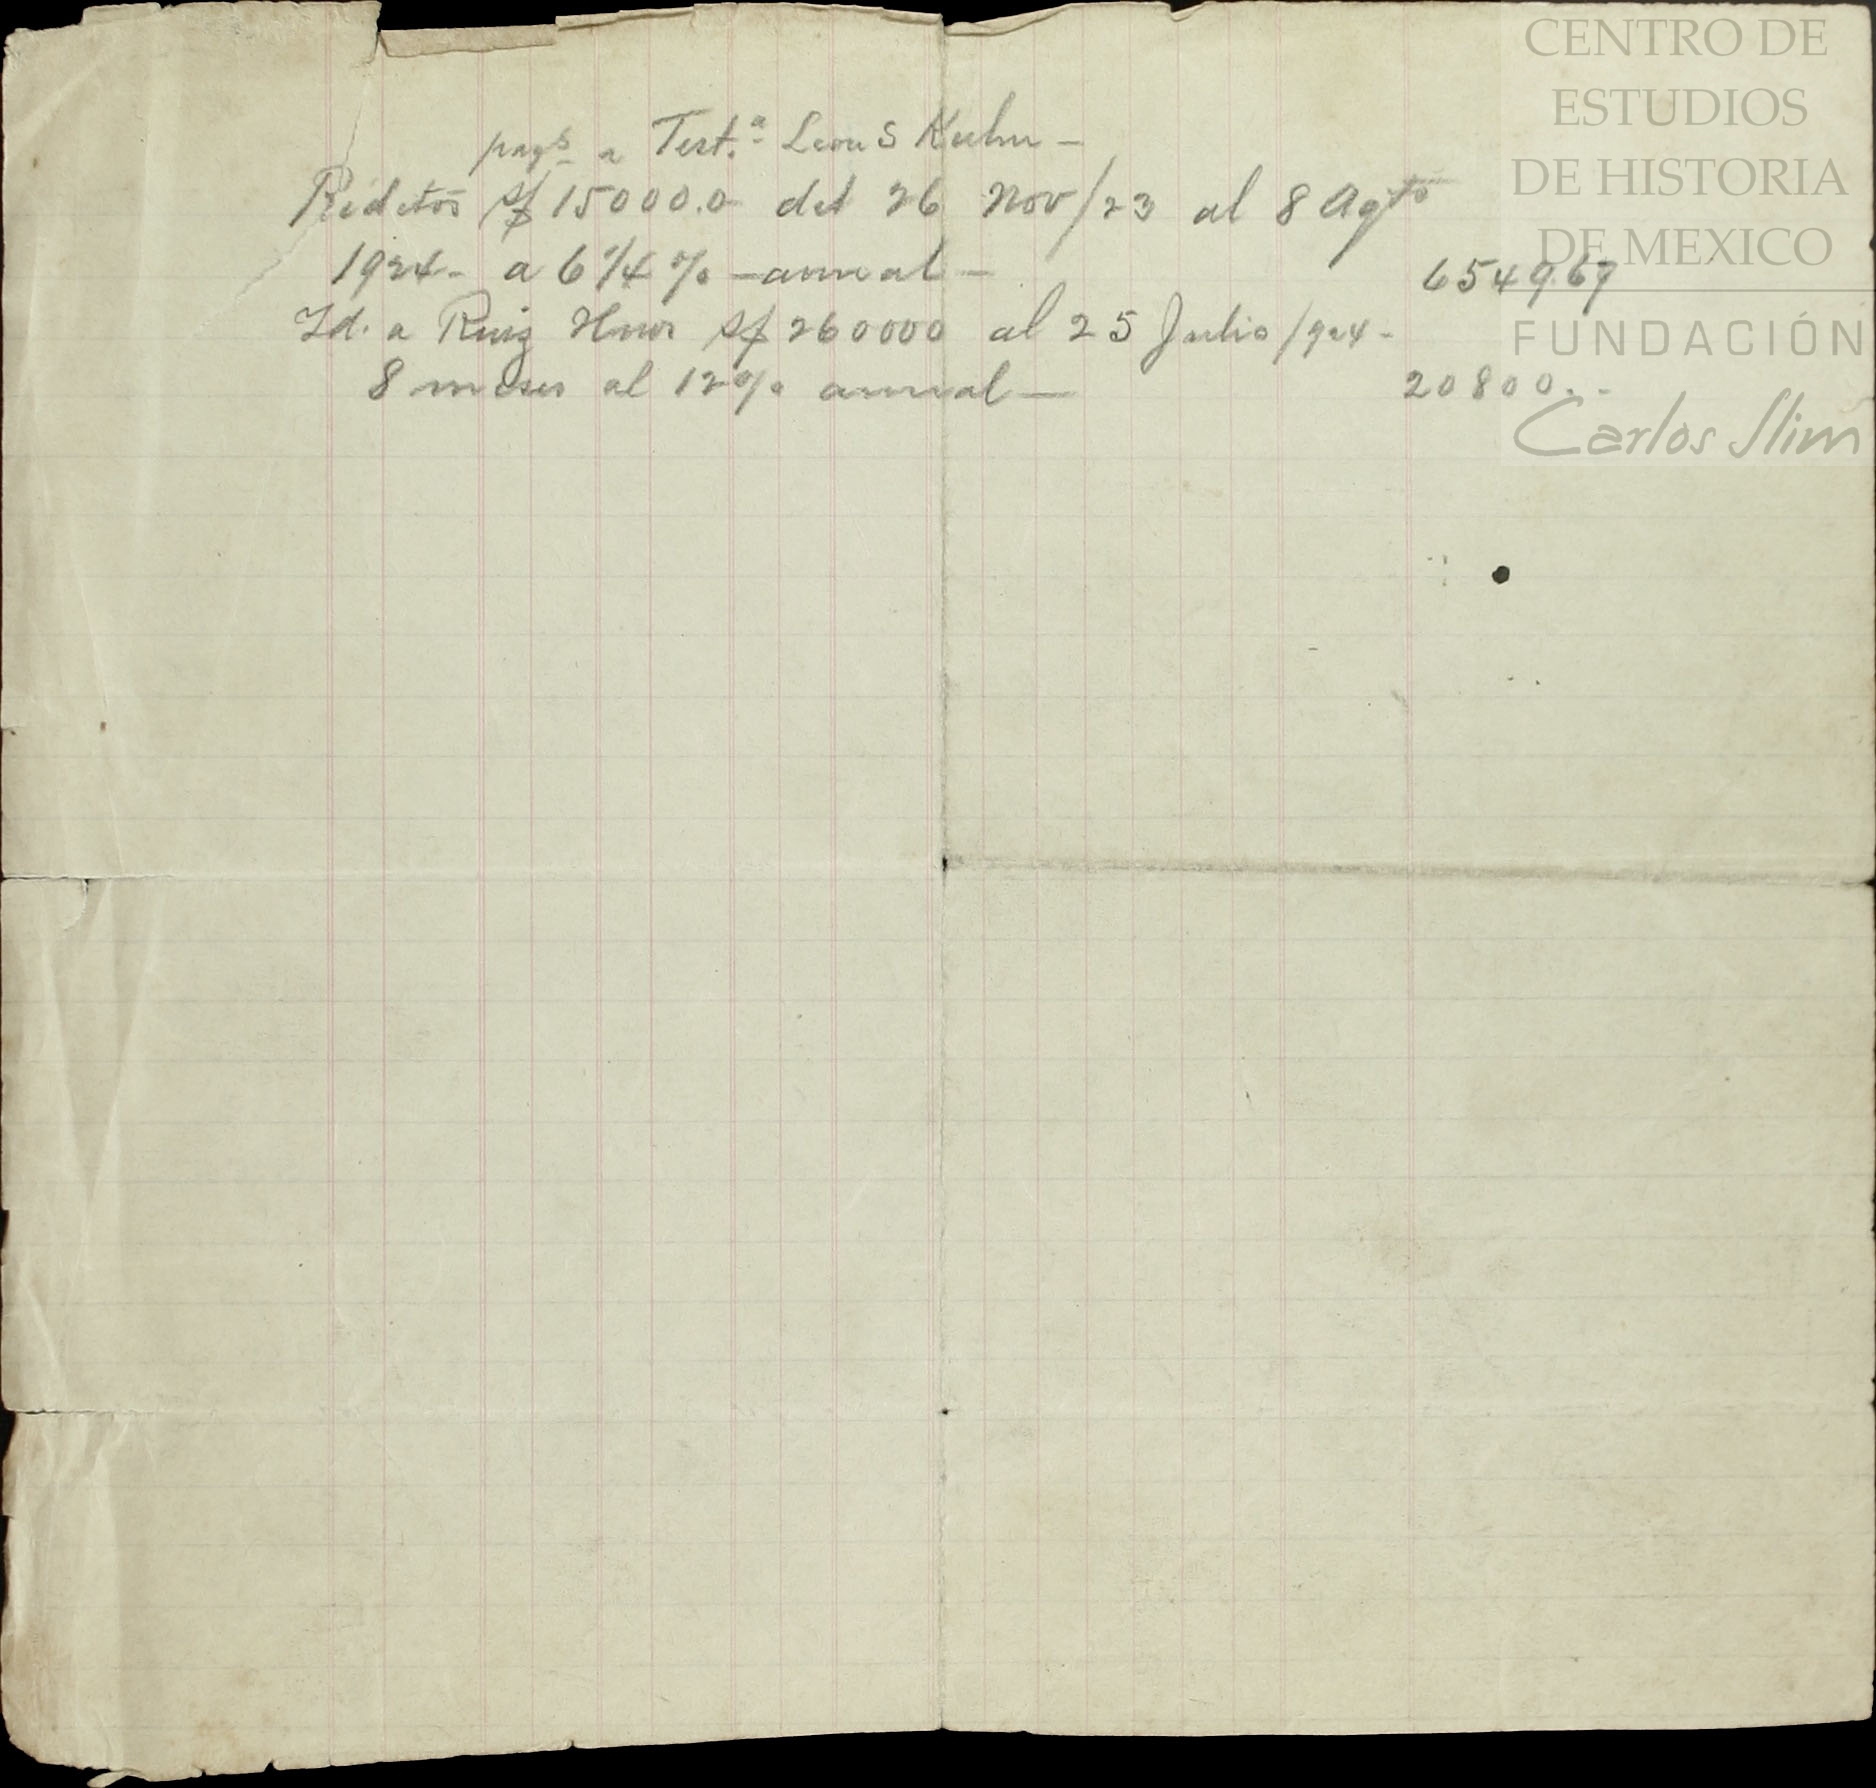 pag.s a Test.a Leon S Kuhn -
Reditos s/ 15000.0 del 26 Nov/23 al 8 Agto
1924 - a 6 1/4 % - anual -
6549.67
Id. a Ruiz Hnos s/ 260000 al 25 Julio/924 -
8 meses al 12% anual -
20800. -
CENTRO DE
ESTUDIOS
DE HISTORIA
DE MEXICO
FUNDACIÓN
Carlos Slim